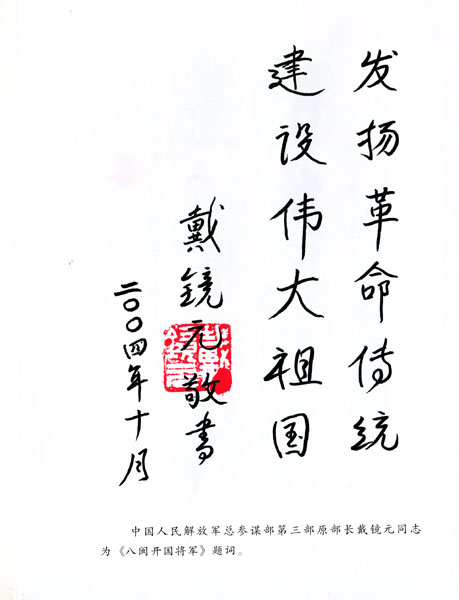 发扬革命传统
建设伟大祖国
戴镜元敬书
二〇〇四年十月
中国人民解放军总参谋部第三部原部长戴镜元同志
为《八闽开国将军》题词。